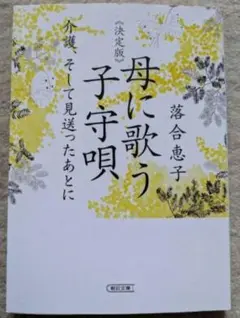 《決定版》
母に歌う
子守唄
介護、そして見送ったあとに
落合恵子
朝日文庫